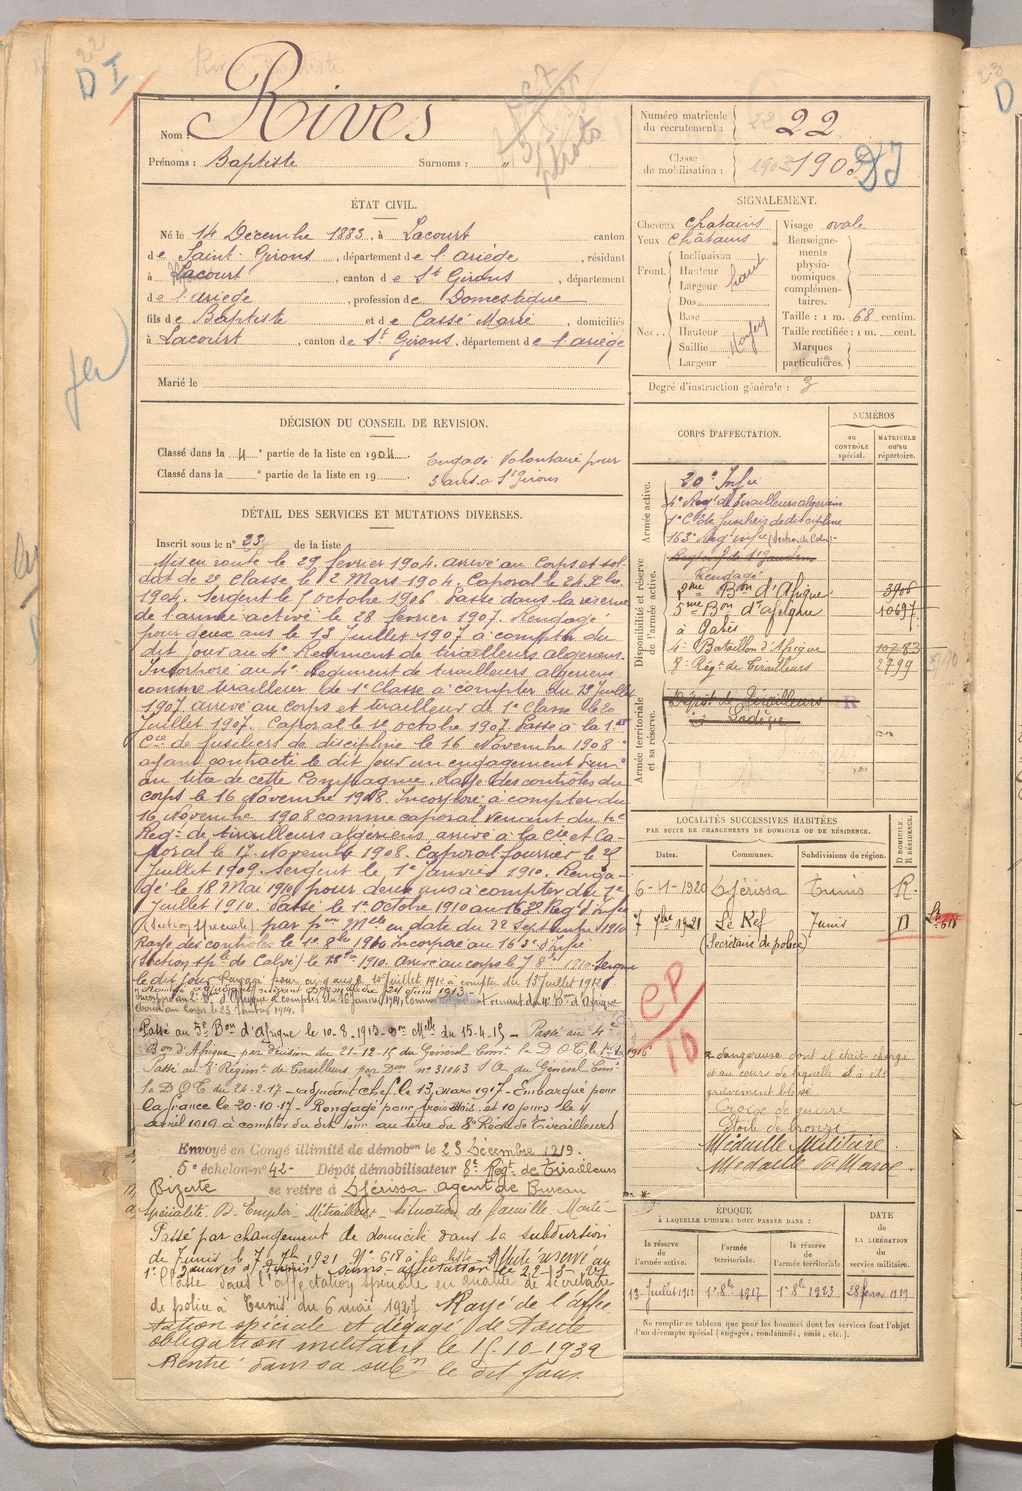 22
D I
Nom : Rives
Prénoms : Baptiste Surnoms : "
Photo
Numéro matricule du recrutement : 22
Classe de mobilisation : 1903
DI
ÉTAT CIVIL.
Né le 14 Décembre 1883, à Lacourt canton
de Saint-Girons, département de l'ariège, résidant
à Lacourt, canton de St Girons, département
de l'ariège, profession de Domestique
fils de Baptiste et de Cassé Marie, domiciliés
à Lacourt, canton de St Girons, département de l'ariège
Marié le
SIGNALEMENT.
Cheveux chatains Visage ovale
Yeux chatains Renseignements physionomiques complémentaires.
Front. Inclinaison
Hauteur haut
Largeur
Nez. Dos
Base
Hauteur Moyen
Saillie
Largeur
Taille : 1 m. 68 centim.
Taille rectifiée : 1 m. cent.
Marques particulières.
Degré d'instruction générale : 3
DÉCISION DU CONSEIL DE REVISION.
Classé dans la 4e partie de la liste en 1904. Engagé Volontaire pour
Classé dans la e partie de la liste en 19 3 ans à St Girons
DÉTAIL DES SERVICES ET MUTATIONS DIVERSES.
Inscrit sous le n° 23 de la liste
Mis en route le 29 février 1904. arrivé au Corps et sol-
dat de 2e Classe le 2 Mars 1904. Caporal le 24 8bre
1904. Sergent le 1 octobre 1906. Passé dans la réserve
de l'armée active le 28 février 1907. Rengagé
pour deux ans le 13 Juillet 1907 à compter du
dit jour au 4e Régiment de tirailleurs algeriens.
Incorporé au 4e Régiment de tirailleurs algeriens
comme tirailleur de 1e Classe à compter du 13 Juillet
1907. arrivé au corps et tirailleur de 1e classe le
Juillet 1907. Caporal le 1e octobre 1907. Passé à la 1e
Cie de fusiliers de discipline le 16 Novembre 1908
ayant contracté le dit jour un engagement
au titre de cette Compagnie. Rayé des contrôles du
corps le 16 Novembre 1908. Incorporé à compter du
16 Novembre 1908 comme caporal venant du 4e
Régt de tirailleurs algériens, arrivé à la Cie et Ca-
poral le 17 Novembre 1908. Caporal fourrier le
Juillet 1909. Sergent le 1e Janvier 1910. Renga-
gé le 18 Mai 1910 pour deux ans à compter du
Juillet 1910. Passé le 1e Octobre 1910 au 163e Régt d'Infie
(Section Spéciale) par Mlle en date du 22 Septembre 1910
Rayé des contrôles le 1e 8bre 1910 incorporé au 163e d'Infie
(Section sple de Calvi) le 1910. Arrivé au corps le 7 8bre 1910. Sergent
le dit jour. Rengagé pour le 10 Juillet 1912 à compter du 13 juillet 1912
Incorporé au 2e Bon d'Afrique à compter du 16 janvier 1914, venant du 4e Bon d'Afrique
Arrivé au Corps le 23 janvier 1914.
Passé au 5e Bon d'Afrique le 10-8-1915 Mlle du 15-4-15 - Passé au 4e
Bon d'Afrique par décision du 21-12-15 du Général Comt le D O E, le 1-1-1916
Passé au 8e Régimt de Tirailleurs par Don n° 31043 du Général Comt
le D O E du 24-2-17 - adjudant chef le 13 mars 1917 - Embarqué pour
la france le 20-10-17 - Rengagé pour trois mois et 10 jours le 4
avril 1919 à compter du dit jour au titre du 8e Régt de Tirailleurs
Envoyé en Congé illimité de démobon le 23 Décembre 1919.
5e échelon n° 42 - Dépôt démobilisateur 8e Régt de Tirailleurs
Bizerte se retire à Djérissa agent de Bureau
Spécialité - Mitrailleur - Situation de famille Marié -
Passé par changement de domicile dans la subdivision
de Tunis le 7 7bre 1921 N° 618 à la liste -
Classé dans l'affectation spéciale en qualité de secrétaire
de police à Tunis du 6 mai 1927 Rayé de l'affec
tation spéciale et dégagé de toute
obligation militaire le 15-10-1932
Rentré dans sa subon le dit jour.
CORPS D'AFFECTATION.
NUMÉROS
AU CONTRÔLE spécial.
MATRICULE ou au répertoire.
Armée active.
20e Infie
4e Régt de Tirailleurs algeriens
1e Cie de fusiliers de discipline
163e Régt infie (Section de Calvi)
Disponibilité et réserve de l'armée active.
Régt inf de St Gaudens
Rengagé
2me Bon d'Afrique 3908
5me Bon d'afrique 10697
à Gabès
4e Bataillon d'Afrique 10783
8e Régt de Tirailleurs 2799
Armée territoriale et sa réserve.
Dépôt de Tirailleurs R
LOCALITÉS SUCCESSIVES HABITÉES
PAR SUITE DE CHANGEMENTS DE DOMICILE OU DE RÉSIDENCE.
Dates. Communes. Subdivisions de région. D DOMICILE. R RÉSIDENCE.
6-1-1920 Djérissa Tunis R.
7 7bre 1921 Le Kef Tunis D 618
(Secrétaire de police)
CP
10
dangereuse dont il était chargé
et au cours de laquelle il a été
grièvement blessé
Croix de guerre
Étoile de bronze
Médaille Militaire
Médaille du Maroc
ÉPOQUE
À LAQUELLE L'HOMME DOIT PASSER DANS :
la réserve de l'armée active. l'armée territoriale. la réserve de l'armée territoriale. DATE de LA LIBÉRATION du service militaire.
13 Juillet 1912 1e 8bre 1917 1e 8bre 1923 28 févr 1929
Ne remplir ce tableau que pour les hommes dont les services font l'objet
d'un décompte spécial (engagés, condamnés, omis, etc.).